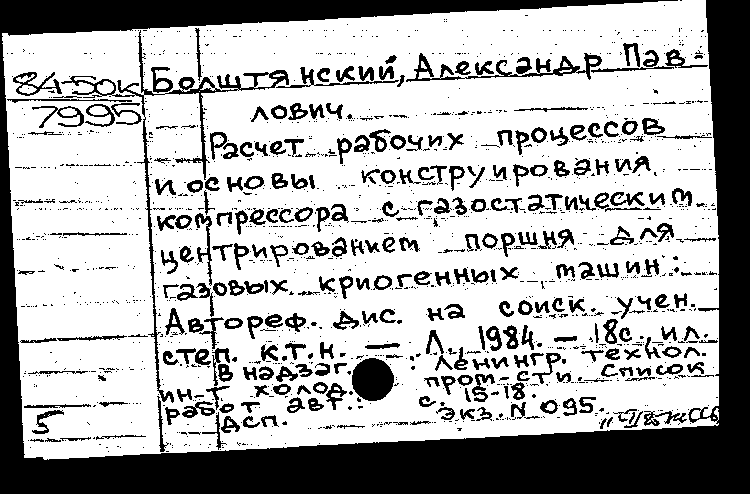 84-50к
7995
Болштянский, Александр Пав-
лович.
Расчет рабочих процессов
и основы конструирования
компрессора с газостатическим
центрированием поршня для
газовых криогенных машин:
Автореф. дис. на соиск. учен.
степ. к.т.н. — Л., 1984. — 18с., ил.
В надзаг.: Ленингр. технол.
ин-т холод. пром-сти. Список
работ авт.: с. 15-18.
Дсп. экз. N 095.
5